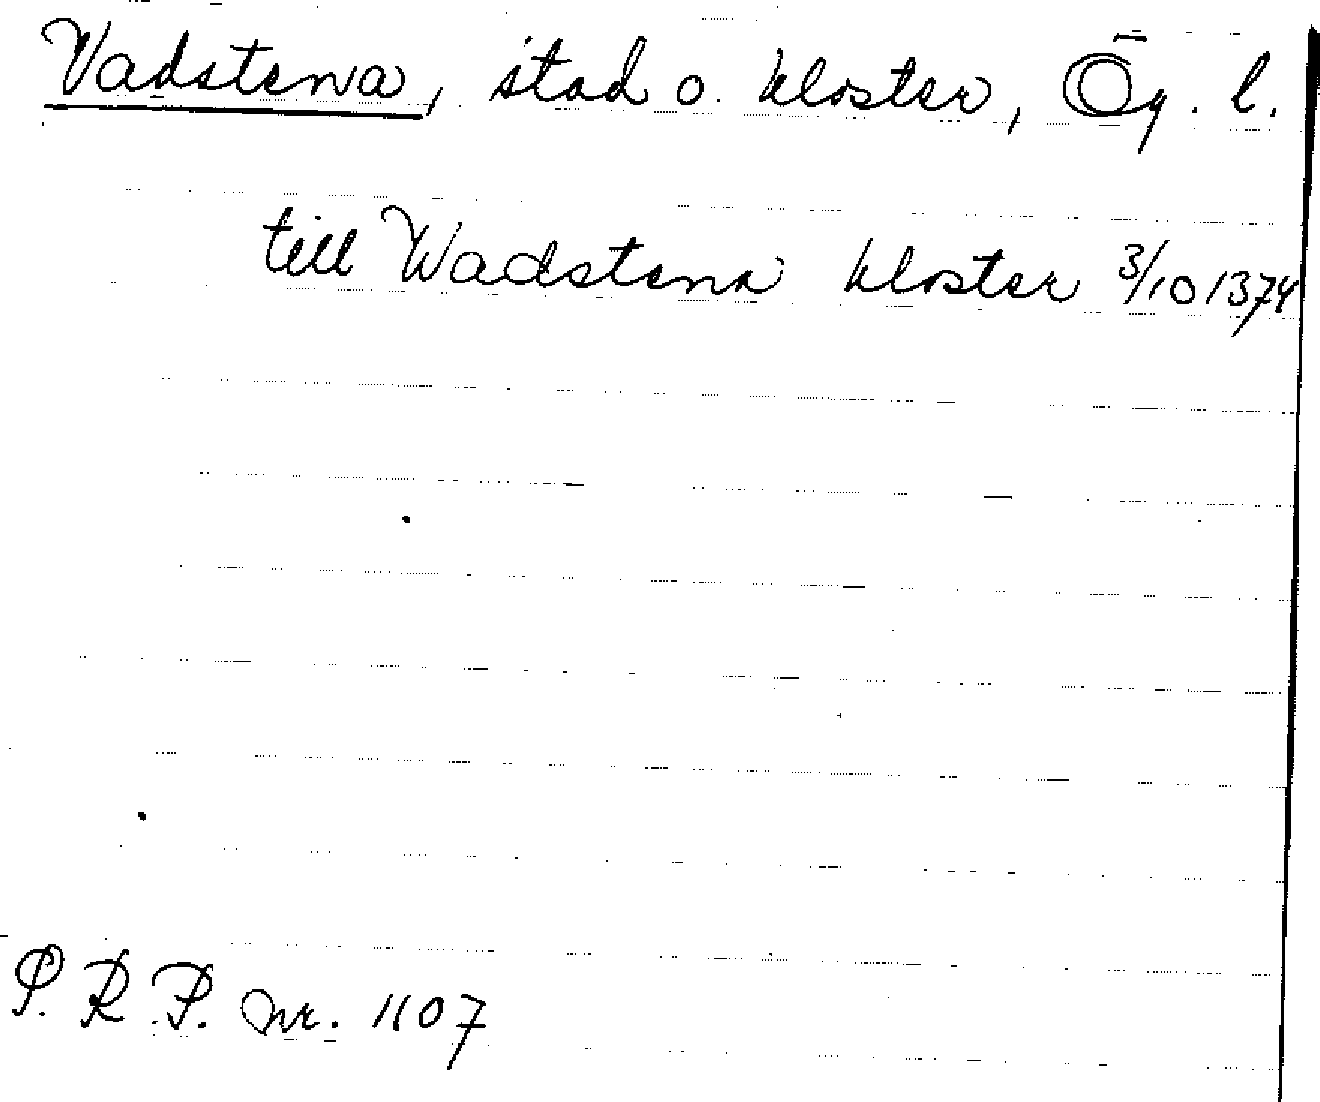 Vadstena, stad o. kloster, Ög. l.
till Wadstena kloster 3/10 1374
P. R. P. nr. 1107